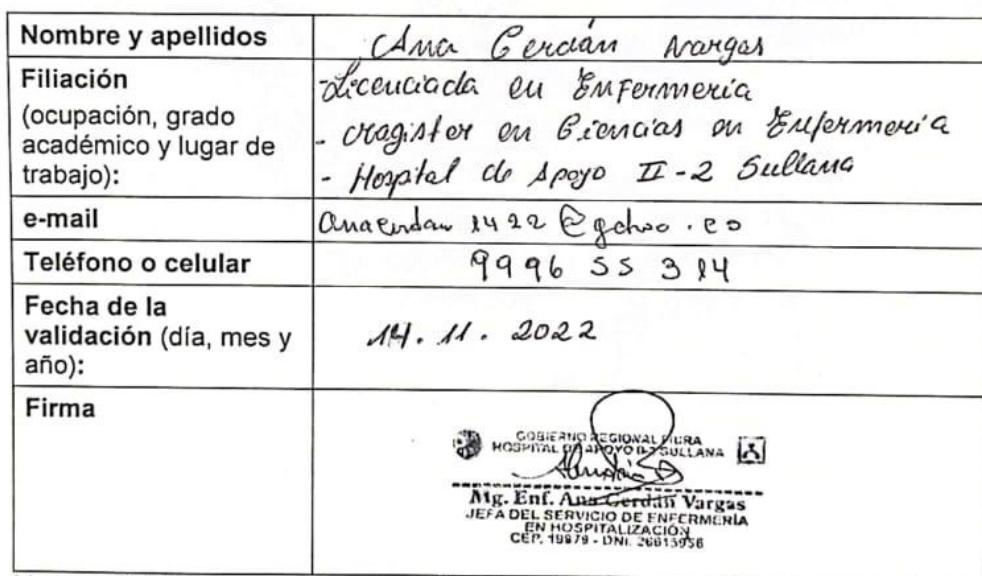 Nombre y apellidos
Ana Cerdán Vargas
Filiación
(ocupación, grado
académico y lugar de
trabajo):
-Licenciada en Enfermería
- Magister en Ciencias en Enfermería
- Hospital de Apoyo II-2 Sullana
e-mail
1422@
Teléfono o celular
9996 55 314
Fecha de la
validación (día, mes y
año):
14. 11. 2022
Firma
GOBIERNO REGIONAL PIURA
HOSPITAL DE APOYO II-2 SULLANA
Mg. Enf. Ana Cerdán Vargas
JEFA DEL SERVICIO DE ENFERMERÍA
EN HOSPITALIZACIÓN
CEP. 19879 - DNI.